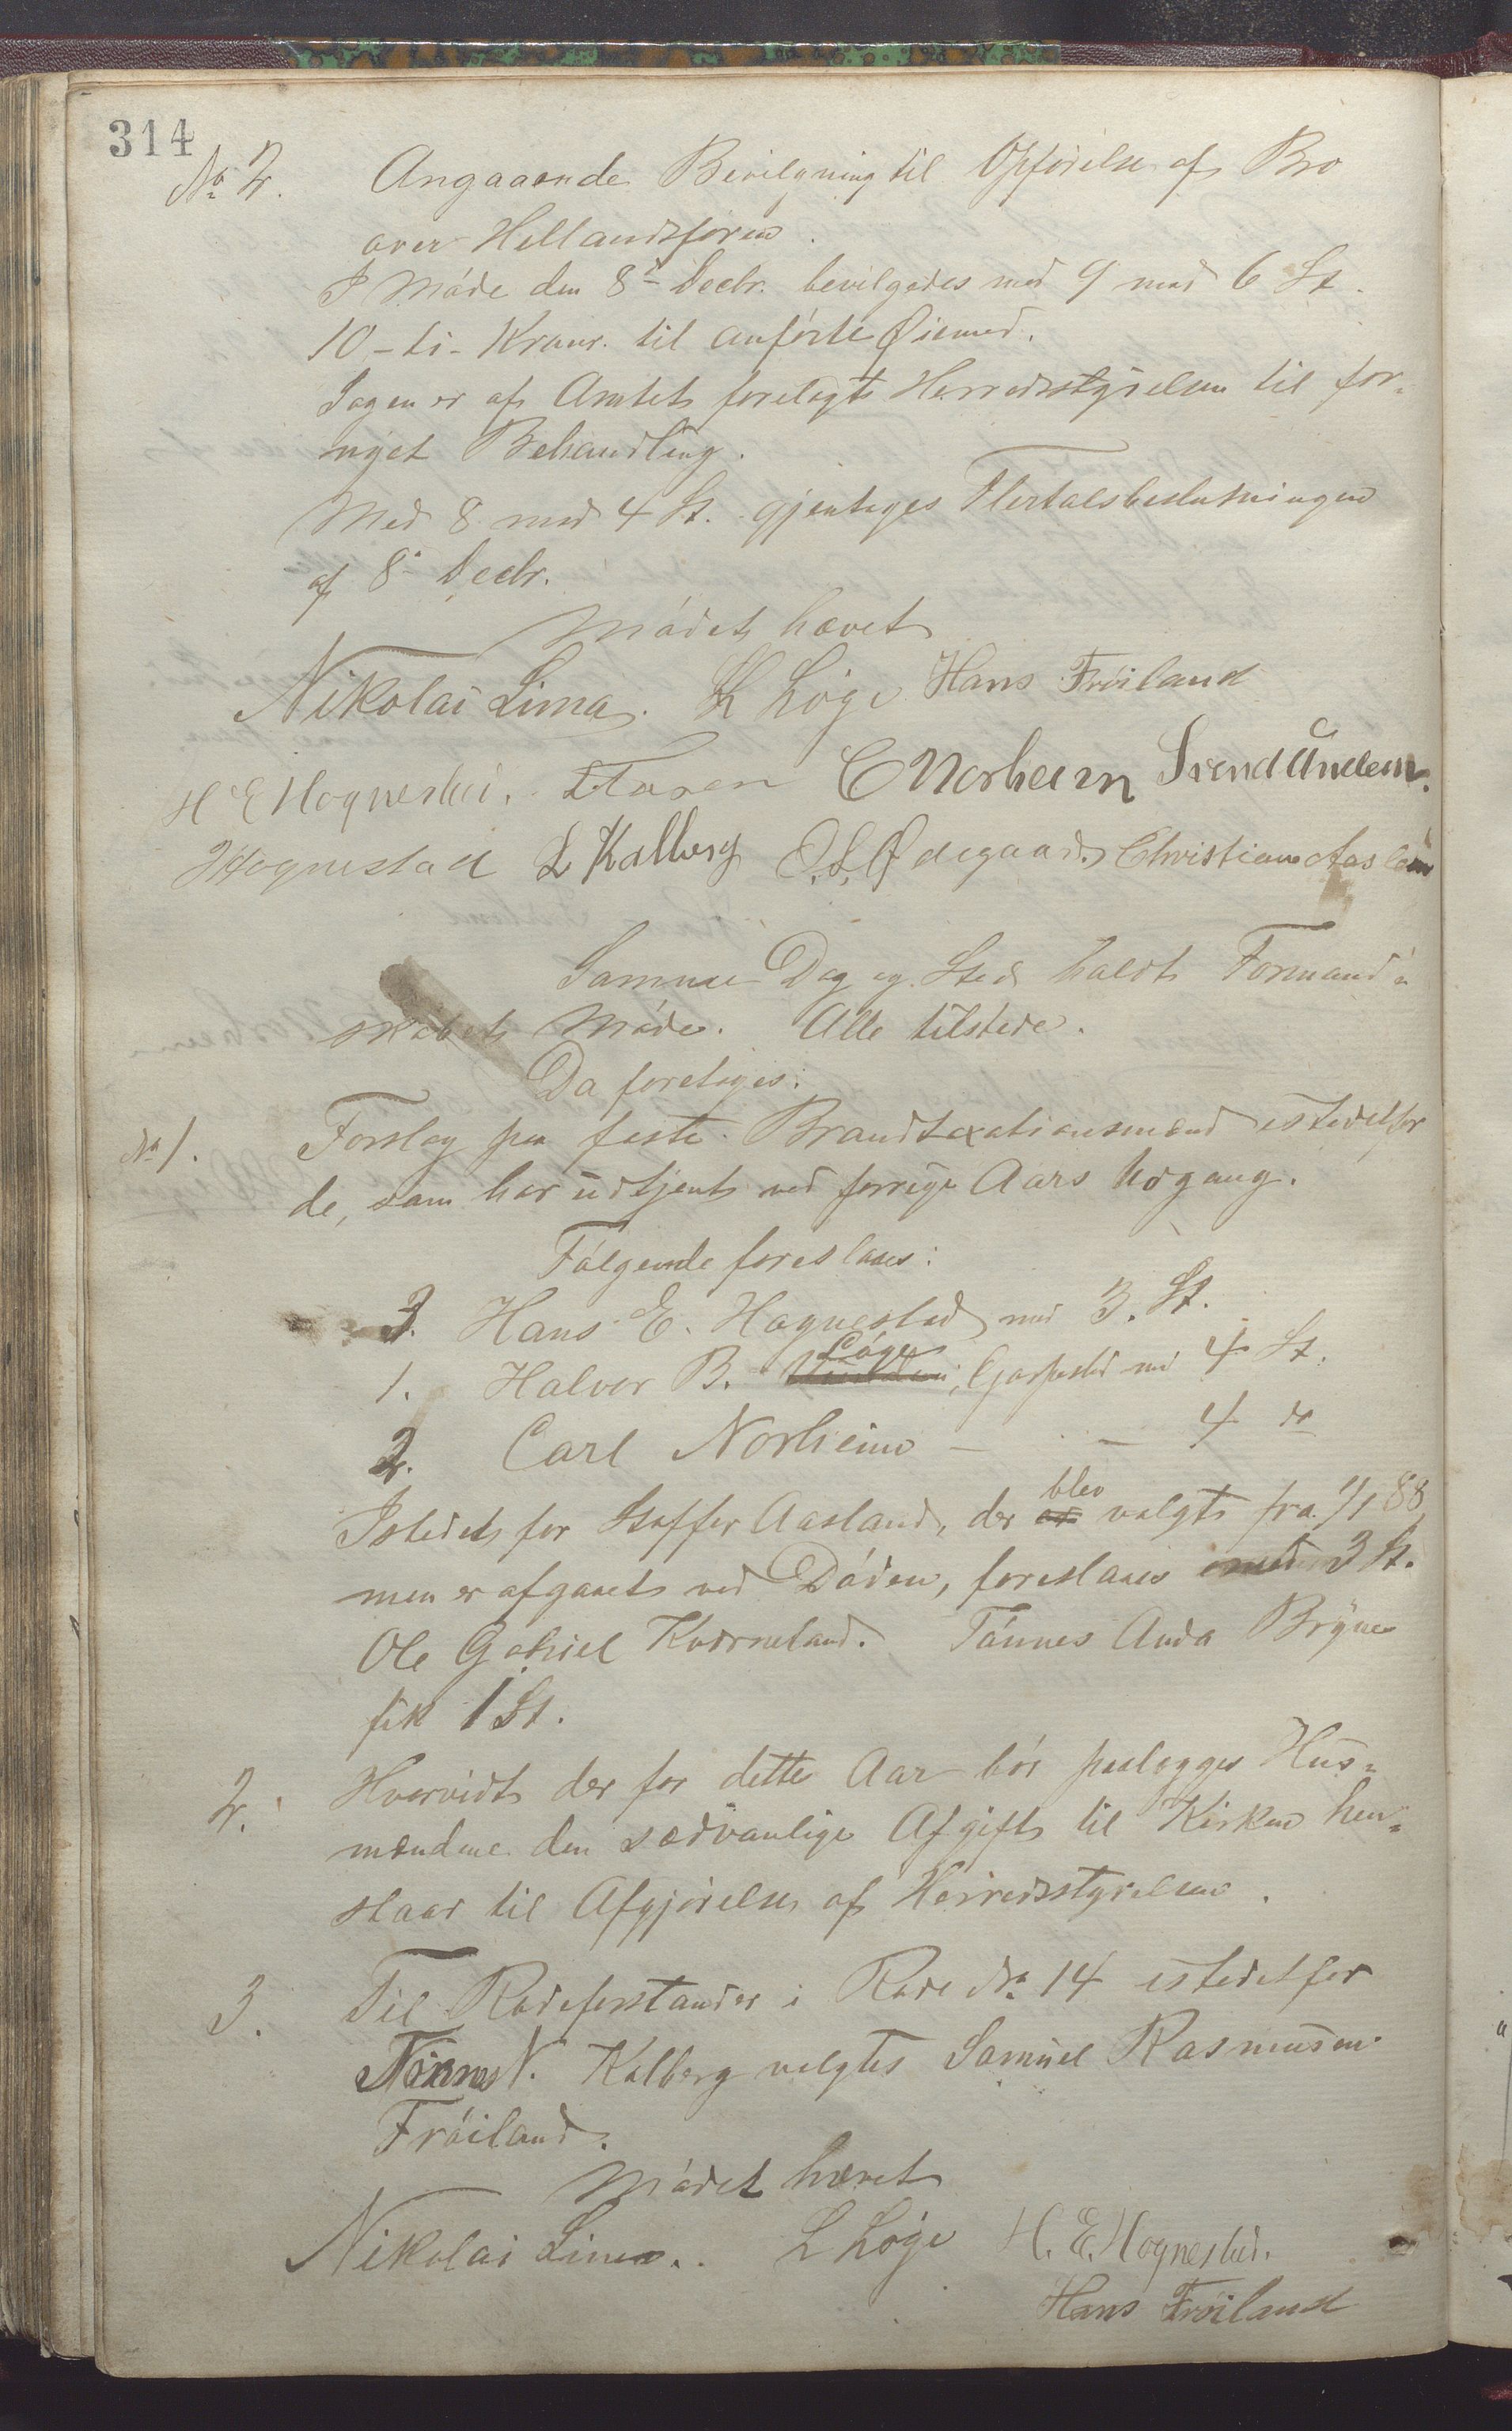 314
No 2. Angaaende Bevilgning til Opførelse af Bro
over Hellandsføren.
I Møde den 8de Decbr. bevilgedes med 9 mod 6 St.
10 - ti - Kroner. til anførte Øiemed.
Sagen er af Amtet forelagt Herredsstyrelsen til for-
nyet Behandling.
Med 8 mod 4 St. gjentages Flertalsbeslutningen
af 8de Decbr.
Mødet hævet
Nikolai Lima. L Løge Hans Frøiland
H E Hognestad. C Norheim Svend Undem.
Hognestad L Kalberg O. S. Ødegaard. Christian Aasland
Samme Dag og Sted holdt Formand-
skabet Møde. Alle tilstede.
Da foretoges:
No 1. Forslag paa faste Brandtaxationsmænd istedetfor
de, som har udtjent ved forrige Aars Udgang.
Følgende foreslaaes:
3. Hans E. Hognestad med 3. St.
1. Halvor B. Løge, Garpestad med 4 St.
2. Carl Norheim — — 4 do
Istedet for Staffer Aasland, der blev valgt fra 1/1 88,
men er afgaaet ved Døden, foreslaaes med 3 St.
Ole Gabriel Kværneland. Tønnes Anda Bryne
fik 1 St.
2. Hvorvidt der for dette Aar bør paalægges Hus-
mændene den sædvanlige Afgift til Kirken hen-
staar til Afgjørelse af Herredsstyrelsen.
3. Til Rodeforstander i Rode No. 14 istedetfor
Tønnes N. Kalberg valgtes Samuel Rasmusen
Frøiland.
Mødet hævet
Nikolai Lima. L Løge H. E. Hognestad.
Hans Frøiland